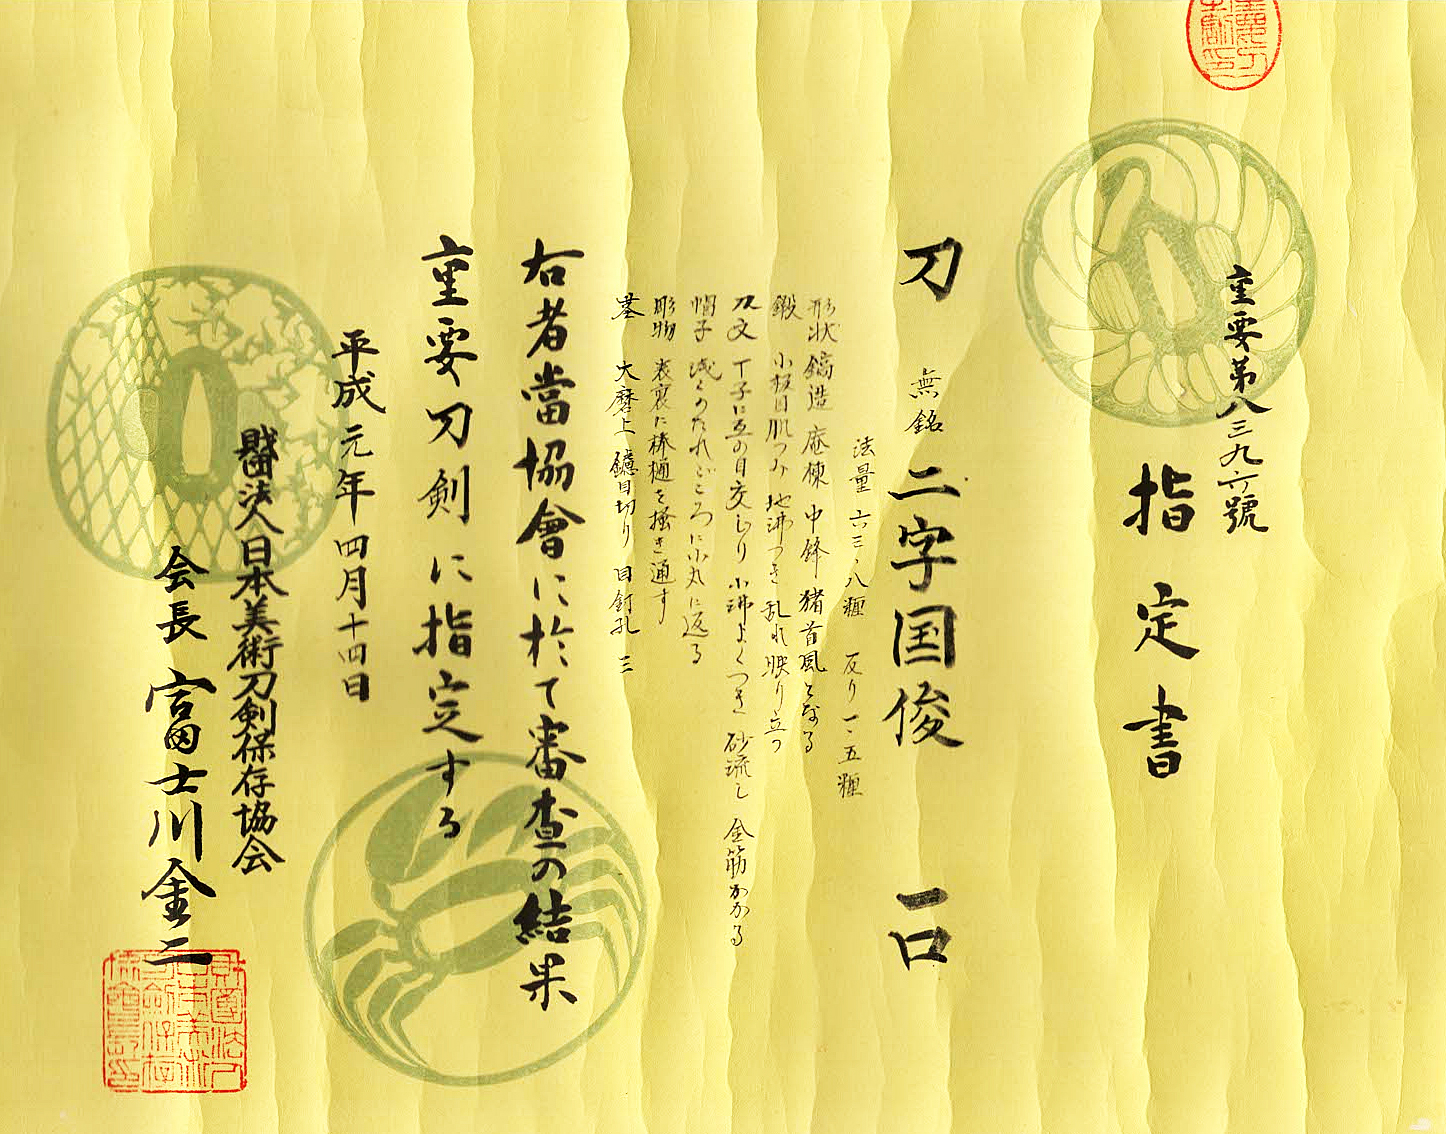 重要第八三九六號
指定書
刀 無銘 二字国俊 一口
法量 六三、八糎 反り 一、五糎
形状 鎬造 庵棟 中鋒 猪首風となる
鍛 小板目肌つみ 地沸つき 乱れ映り立つ
刃文 丁子に互の目交じり 小沸よくつき 砂流し 金筋かかる
帽子 浅くのたれごころに小丸に返る
彫物 表裏に棒樋を掻き通す
茎 大磨上 鑢目切り 目釘孔 三
右者當協會に於て審査の結果
重要刀剣に指定する
平成元年四月十四日
財団法人日本美術刀剣保存協会
会長 富士川金二